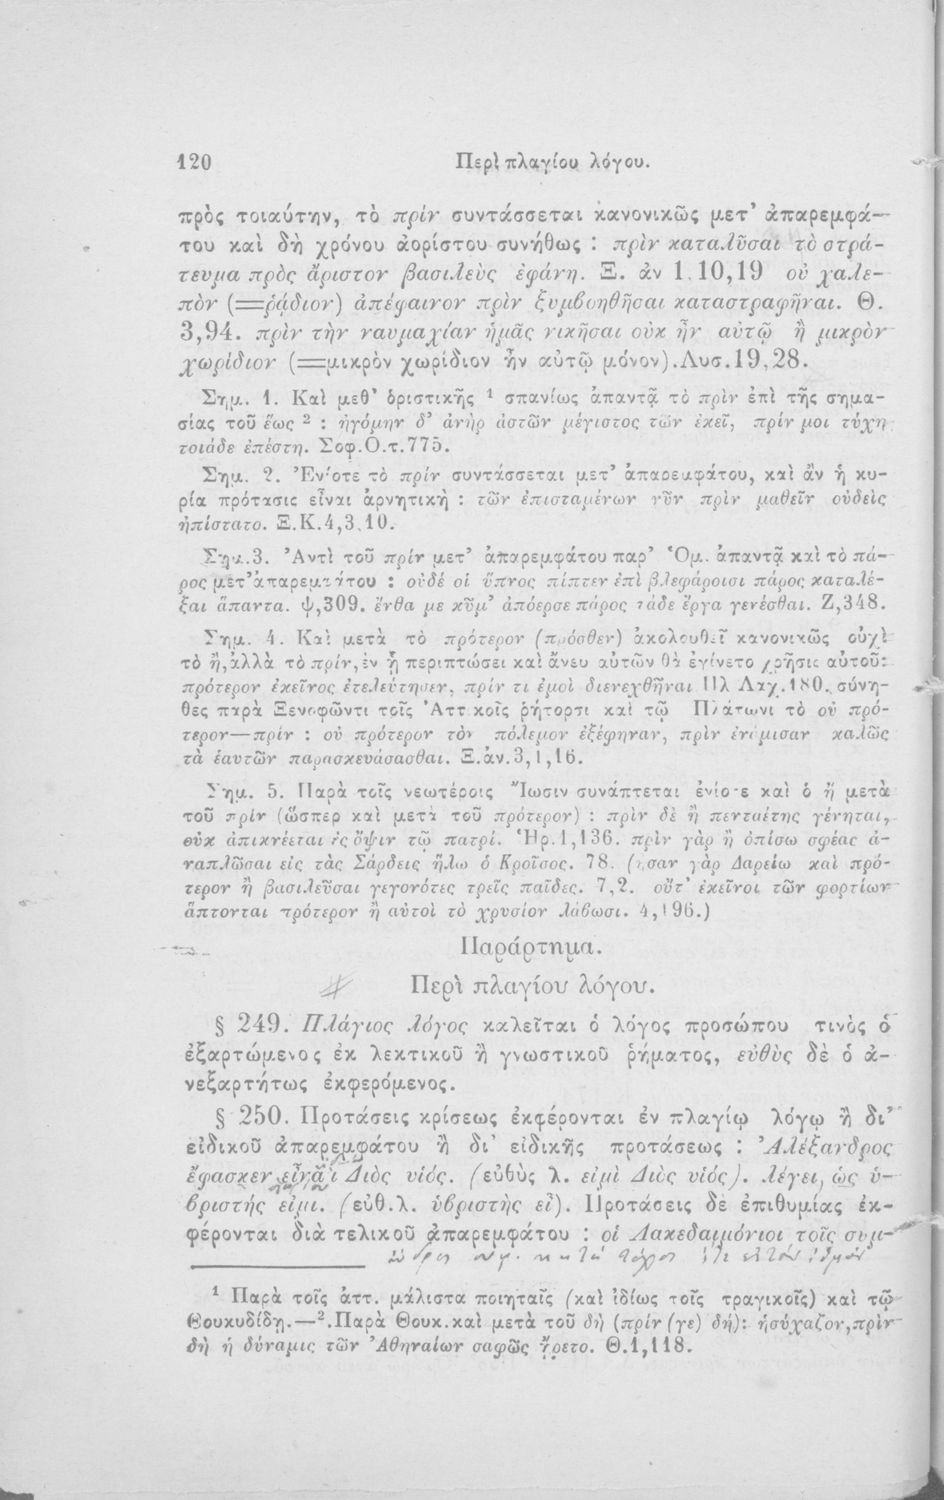 120 Περὶ πλαγίου λόγου.
πρὸς τοιαύτην, τὸ πρίν συντάσσεται κανονικῶς μετ’ ἀπαρεμφά-
του καὶ δὴ χρόνου ἀορίστου συνήθως : πρὶν καταλῦσαι τὸ στρά-
τευμα πρὸς ἄριστον βασιλεὺς ἐφάνη. Ξ. ἀν 1.10,19 οὐ χαλε-
πὸν (=ῥᾴδιον) ἀπέφαινον πρὶν ξυμβοηθῆσαι καταστραφῆναι. Θ.
3,94. πρὶν τὴν ναυμαχίαν ἡμᾶς νικῆσαι οὐκ ἦν αὐτῷ ἢ μικρὸν
χωρίδιον (=μικρὸν χωρίδιον ἦν αὐτῷ μόνον).Λυσ.19,28.
Σημ. 1. Καὶ μεθ’ ὁριστικῆς ¹ σπανίως ἀπαντᾷ τὸ πρὶν ἐπὶ τῆς σημα-
σίας τοῦ ἕως ² : ἠγόμην δ’ ἀνὴρ ἀστῶν μέγιστος τῶν ἐκεῖ, πρίν μοι τύχη
τοιάδε ἐπέστη. Σοφ.Ο.τ.775.
Σημ. 2. Ἐνίοτε τὸ πρίν συντάσσεται μετ’ ἀπαρεμφάτου, καὶ ἂν ἡ κυ-
ρία πρότασις εἶναι ἀρνητικὴ : τῶν ἐπισταμένων νῦν πρὶν μαθεῖν οὐδεὶς
ἠπίστατο. Ξ.Κ.4,3.10.
Σημ.3. Ἀντὶ τοῦ πρίν μετ’ ἀπαρεμφάτου παρ’ Ὁμ. ἀπαντᾷ καὶ τὸ πά-
ρος μετ’ἀπαρεμφάτου : οὐδέ οἱ ὕπνος πίπτεν ἐπὶ βλεφάροισι πάρος καταλέ-
ξαι ἅπαντα. ψ,309. ἔνθα με κῦμ’ ἀπόερσε πάρος τάδε ἔργα γενέσθαι. Ζ,348.
Σημ. 4. Καὶ μετὰ τὸ πρότερον (πρόσθεν) ἀκολουθεῖ κανονικῶς οὐχὶ
τὸ ἤ,ἀλλὰ τὸ πρίν,ἐν ᾗ περιπτώσει καὶ ἄνευ αὐτῶν θὰ ἐγίνετο χρῆσις αὐτοῦ:
πρότερον ἐκεῖνος ἐτελεύτησεν, πρίν τι ἐμοὶ διενεχθῆναι Πλ Λαχ.180. σύνη-
θες παρὰ Ξενοφῶντι τοῖς Ἀττικοῖς ῥήτορσι καὶ τῷ Πλάτωνι τὸ οὐ πρό-
τερον—πρίν : οὐ πρότερον τὸν πόλεμον ἐξέφηναν, πρὶν ἐνόμισαν καλῶς
τὰ ἑαυτῶν παρασκευάσασθαι. Ξ.ἀν.3,1,16.
Σημ. 5. Παρὰ τοῖς νεωτέροις Ἴωσιν συνάπτεται ἐνίοτε καὶ ὁ ἤ μετὰ
τοῦ πρίν (ὥσπερ καὶ μετὰ τοῦ πρότερον) : πρὶν δὲ ἢ πενταέτης γένηται,
οὐκ ἀπικνέεται ἐς ὄψιν τῷ πατρί. Ἡρ.1,136. πρὶν γὰρ ἢ ὀπίσω σφέας ἀ-
ναπλῶσαι εἰς τὰς Σάρδεις ἥλω ὁ Κροῖσος. 78. (ἦσαν γὰρ Δαρείῳ καὶ πρό-
τερον ἢ βασιλεῦσαι γεγονότες τρεῖς παῖδες. 7,2. οὔτ’ ἐκεῖνοι τῶν φορτίων
ἅπτονται πρότερον ἢ αὐτοὶ τὸ χρυσίον λάβωσι. 4,196.)
Παράρτημα.
Περὶ πλαγίου λόγου.
§ 249. Πλάγιος λόγος καλεῖται ὁ λόγος προσώπου τινὸς ὁ
ἐξαρτώμενος ἐκ λεκτικοῦ ἢ γνωστικοῦ ῥήματος, εὐθὺς δὲ ὁ ἀ-
νεξαρτήτως ἐκφερόμενος.
§ 250. Προτάσεις κρίσεως ἐκφέρονται ἐν πλαγίῳ λόγῳ ἢ δι’
εἰδικοῦ ἀπαρεμφάτου ἢ δι’ εἰδικῆς προτάσεως : Ἀλέξανδρος
ἔφασκεν εἶναι Διὸς υἱός. (εὐθὺς λ. εἰμὶ Διὸς υἱός). λέγει, ὡς ὑ-
βριστής εἰμι. (εὐθ.λ. ὑβριστὴς εἶ). Προτάσεις δὲ ἐπιθυμίας ἐκ-
φέρονται διὰ τελικοῦ ἀπαρεμφάτου : οἱ Λακεδαιμόνιοι τοῖς συμ-
¹ Παρὰ τοῖς ἀττ. μάλιστα ποιηταῖς (καὶ ἰδίως τοῖς τραγικοῖς) καὶ τῷ
Θουκυδίδῃ.—².Παρὰ Θουκ.καὶ μετὰ τοῦ δὴ (πρίν (γε) δή): ἡσύχαζον,πρὶν
δὴ ἡ δύναμις τῶν Ἀθηναίων σαφῶς ᾔρετο. Θ.1,118.